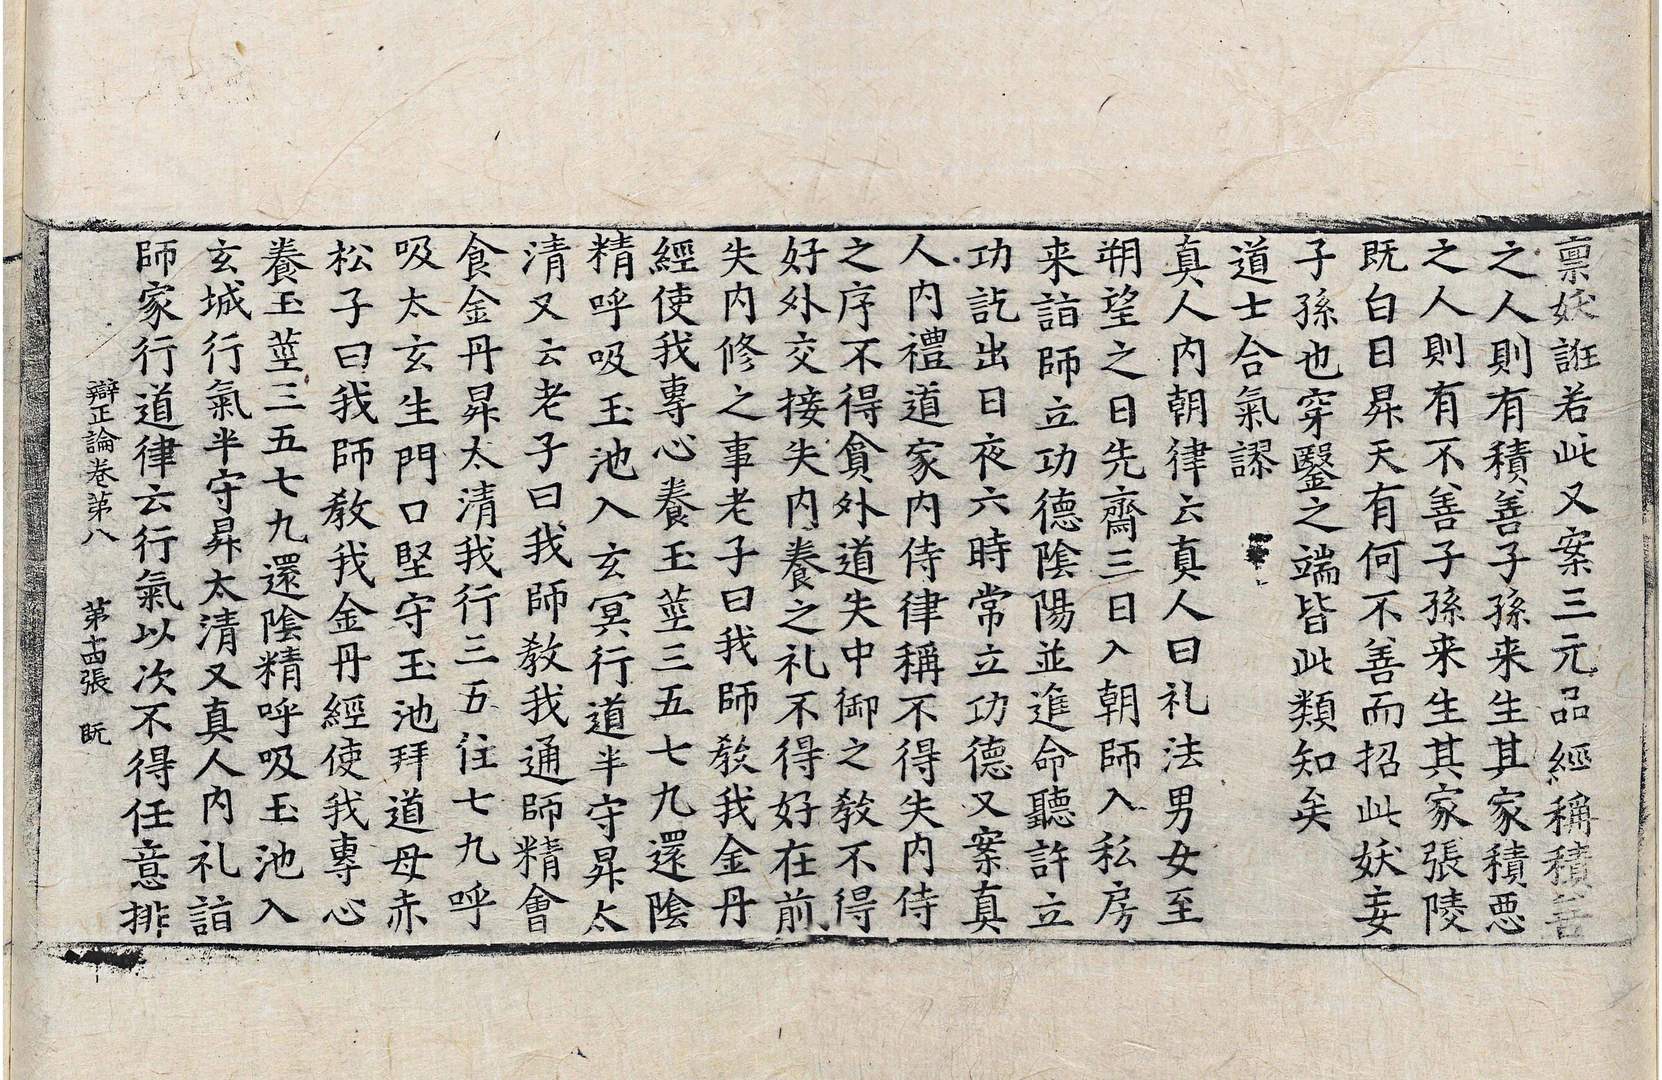 禀妖誑若此又案三元品經稱積善
之人則有積善子孫来生其家積惡
之人則有不善子孫来生其家張陵
既白日昇天有何不善而招此妖妄
子孫也穿鑿之端皆此類知矣
道士合氣謬
真人内朝律云真人曰礼法男女至
朔望之日先齋三日入朝師入私房
来詣師立功德陰陽並進命聽許立
功訖出日夜六時常立功德又案真
人内禮道家内侍律稱不得失内侍
之序不得貪外道失中御之教不得
好外交接失内養之礼不得好在前
失内修之事老子曰我師教我金丹
經使我專心養玉莖三五七九還陰
精呼吸玉池入玄冥行道半守昇太
清又云老子曰我師教我通師精會
食金丹昇太清我行三五住七九呼
吸太玄生門口堅守玉池拜道母赤
松子曰我師教我金丹經使我專心
養玉莖三五七九還陰精呼吸玉池入
玄城行氣半守昇太清又真人内礼詣
師家行道律云行氣以次不得任意排
辯正論卷第八 第十四張 既